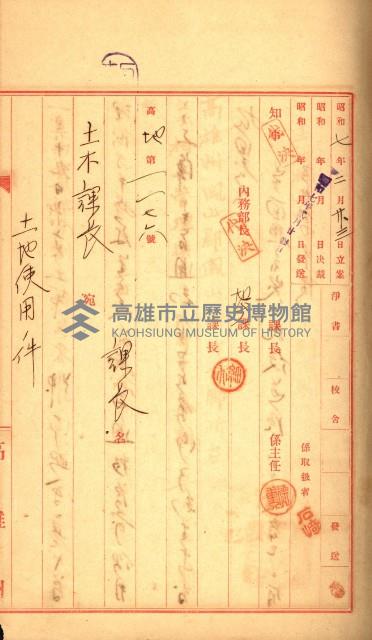 昭和七年二月廿三日立案
昭和 年 月 日決裁
昭和 年 月 日發送
淨書
校合
發送
係取扱者
石崎
知事
代決
內務部長
代決
地方課長
課長
係主任
高地第一一七六號
土木課長 宛
課長 名
土地使用ノ件
高雄市立歷史博物館
KAOHSIUNG MUSEUM OF HISTORY
高雄州